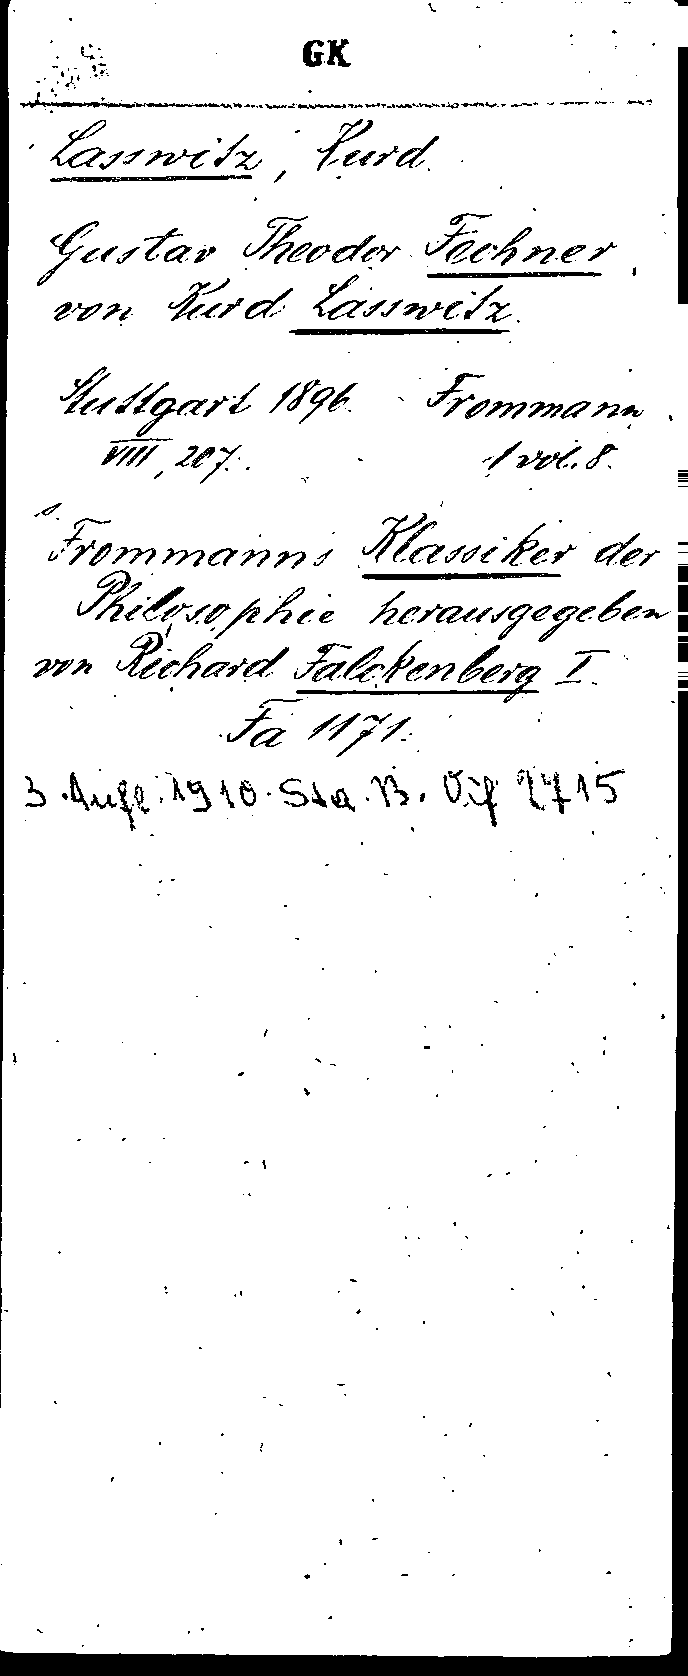 GK
Lasswitz, Kurd.
Gustav Theodor Fechner,
von Kurd Lasswitz.
Stuttgart 1896. Frommann.
VIII, 207. 1 vol. 8.
s.
Frommanns Klassiker der
Philosophie herausgegeben
von Richard Falckenberg I.
Fa 1171.
3. Aufl. 1910. Sta. B. 2715